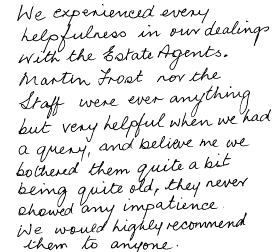 We experienced every
helpfulness in our dealings
with the Estate Agents.
Martin Frost nor the
Staff were ever anything
but very helpful when we had
a query, and believe me we
bothered them quite a bit
being quite old, they never
showed any impatience.
We would highly recommend
them to anyone.